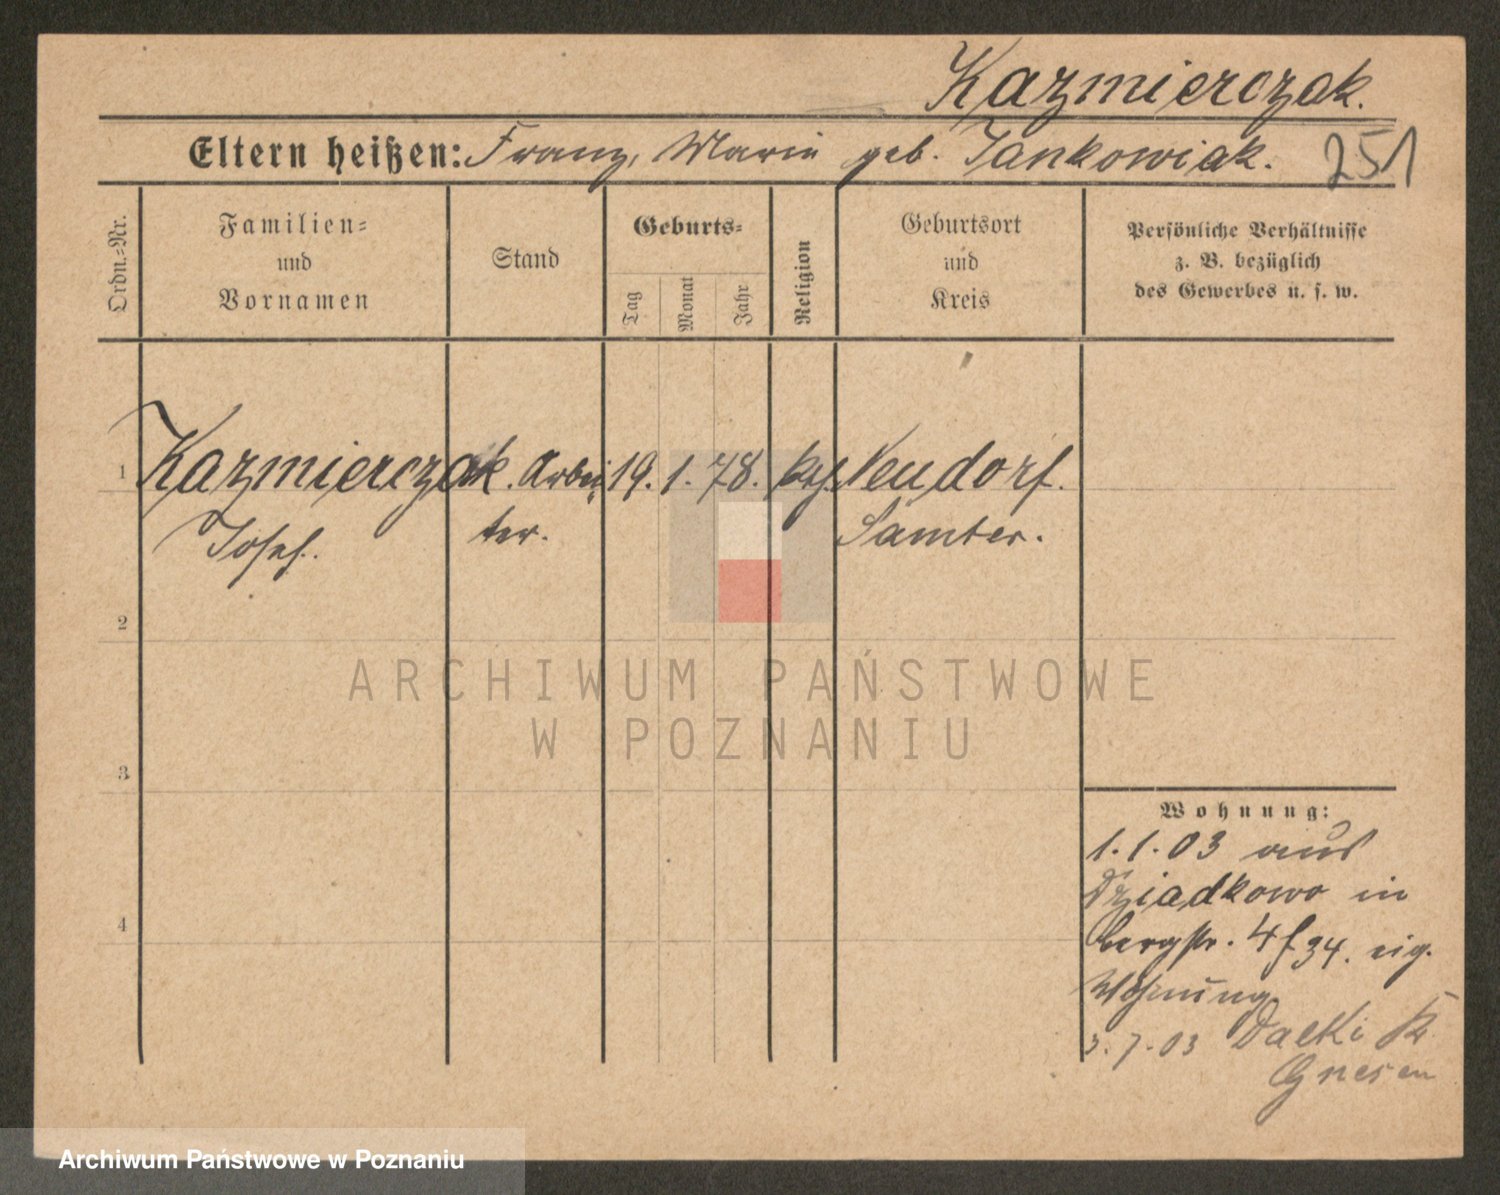 Kazmierczak.
Eltern heißen: Franz, Marie geb. Jankowiak.
251
Ordn.=Nr.
Familien=
und
Vornamen
Stand
Geburts=
Tag
Monat
Jahr
Religion
Geburtsort
und
Kreis
Persönliche Verhältnisse
z. B. bezüglich
des Gewerbes u. s. w.
1
Kazmierczak. Arbei 19. 1. 78. kath. Neudorf.
Josef. ter. Samter.
2
3
4
ARCHIWUM PAŃSTWOWE
W POZNANIU
Wohnung:
1.1.03 aus
Dziadkowo in
Bergstr. 4 f 34. eig.
Wohnung
3.7.03 Dalki K
Gnesen
Archiwum Państwowe w Poznaniu